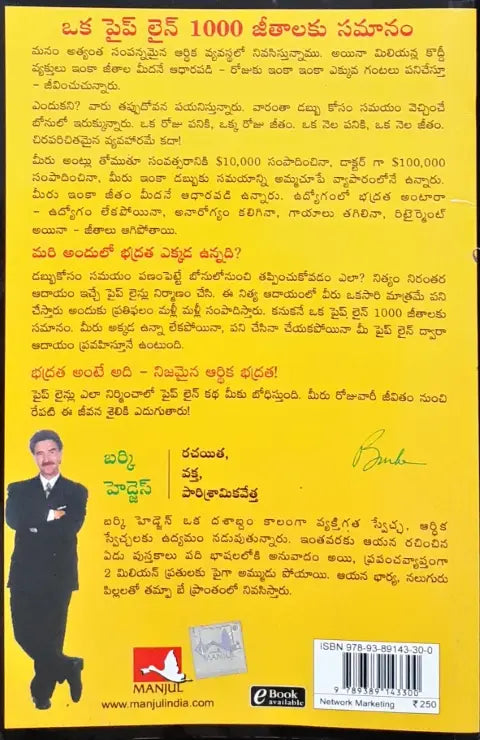 ఒక పైప్ లైన్ 1000 జీతాలకు సమానం
మనం అత్యంత సంపన్నమైన ఆర్థిక వ్యవస్థలో నివసిస్తున్నాము. అయినా మిలియన్ల కొద్దీ
వ్యక్తులు ఇంకా జీతాల మీదనే ఆధారపడి - రోజుకు ఇంకా ఇంకా ఎక్కువ గంటలు పనిచేస్తూ
- జీవించుచున్నారు.
ఎందుకని? వారు తప్పుదోవన పయనిస్తున్నారు. వారంతా డబ్బు కోసం సమయం వెచ్చించే
బోనులో ఇరుక్కున్నారు. ఒక రోజు పనికి, ఒక్క రోజు జీతం. ఒక నెల పనికి, ఒక నెల జీతం.
చిరపరిచితమైన వ్యవహారమే కదా!
మీరు అంట్లు తోముతూ సంవత్సరానికి $10,000 సంపాదించినా, డాక్టర్ గా $100,000
సంపాదించినా, మీరు ఇంకా డబ్బుకు సమయాన్ని అమ్మచూపే వ్యాపారంలోనే ఉన్నారు.
మీరు ఇంకా జీతం మీదనే ఆధారపడి ఉన్నారు. ఉద్యోగంలో భద్రత అంటారా
- ఉద్యోగం లేకపోయినా, అనారోగ్యం కలిగినా, గాయాలు తగిలినా, రిటైర్మెంట్
అయినా - జీతాలు ఆగిపోతాయి.
మరి అందులో భద్రత ఎక్కడ ఉన్నది?
డబ్బుకోసం సమయం పణంపెట్టే బోనులోనుంచి తప్పించుకోవడం ఎలా? నిత్యం నిరంతర
ఆదాయం ఇచ్చే పైప్ లైన్లు నిర్మాణం చేసి. ఈ నిత్య ఆదాయంలో వీరు ఒకసారి మాత్రమే పని
చేస్తారు అందుకు ప్రతిఫలం మళ్లీ మళ్లీ సంపాదిస్తారు. కనుకనే ఒక పైప్ లైన్ 1000 జీతాలకు
సమానం. మీరు అక్కడ ఉన్నా లేకపోయినా, పని చేసినా చేయకపోయినా మీ పైప్ లైన్ ద్వారా
ఆదాయం ప్రవహిస్తూనే ఉంటుంది.
భద్రత అంటే అది - నిజమైన ఆర్థిక భద్రత!
పైప్ లైన్లు ఎలా నిర్మించాలో పైప్ లైన్ కథ మీకు బోధిస్తుంది. మీరు రోజువారీ జీవితం నుంచి
రేపటి ఈ జీవన శైలికి ఎదుగుతారు!
బర్కి
హెడ్జెస్
రచయిత,
వక్త,
పారిశ్రామికవేత్త
బర్కి హెడ్జెస్ ఒక దశాబ్దం కాలంగా వ్యక్తిగత స్వేచ్ఛ, ఆర్థిక
స్వేచ్ఛలకు ఉద్యమం నడుపుతున్నారు. ఇంతవరకు ఆయన రచించిన
ఏడు పుస్తకాలు పది భాషలలోకి అనువాదం అయి, ప్రపంచవ్యాప్తంగా
2 మిలియన్ ప్రతులకు పైగా అమ్ముడు పోయాయి. ఆయన భార్య, నలుగురు
పిల్లలతో తమ్పా బే ప్రాంతంలో నివసిస్తారు.
MANJUL
www.manjulindia.com
eBook
available
ISBN 978-93-89143-30-0
9 789389 143300
Network Marketing ₹250